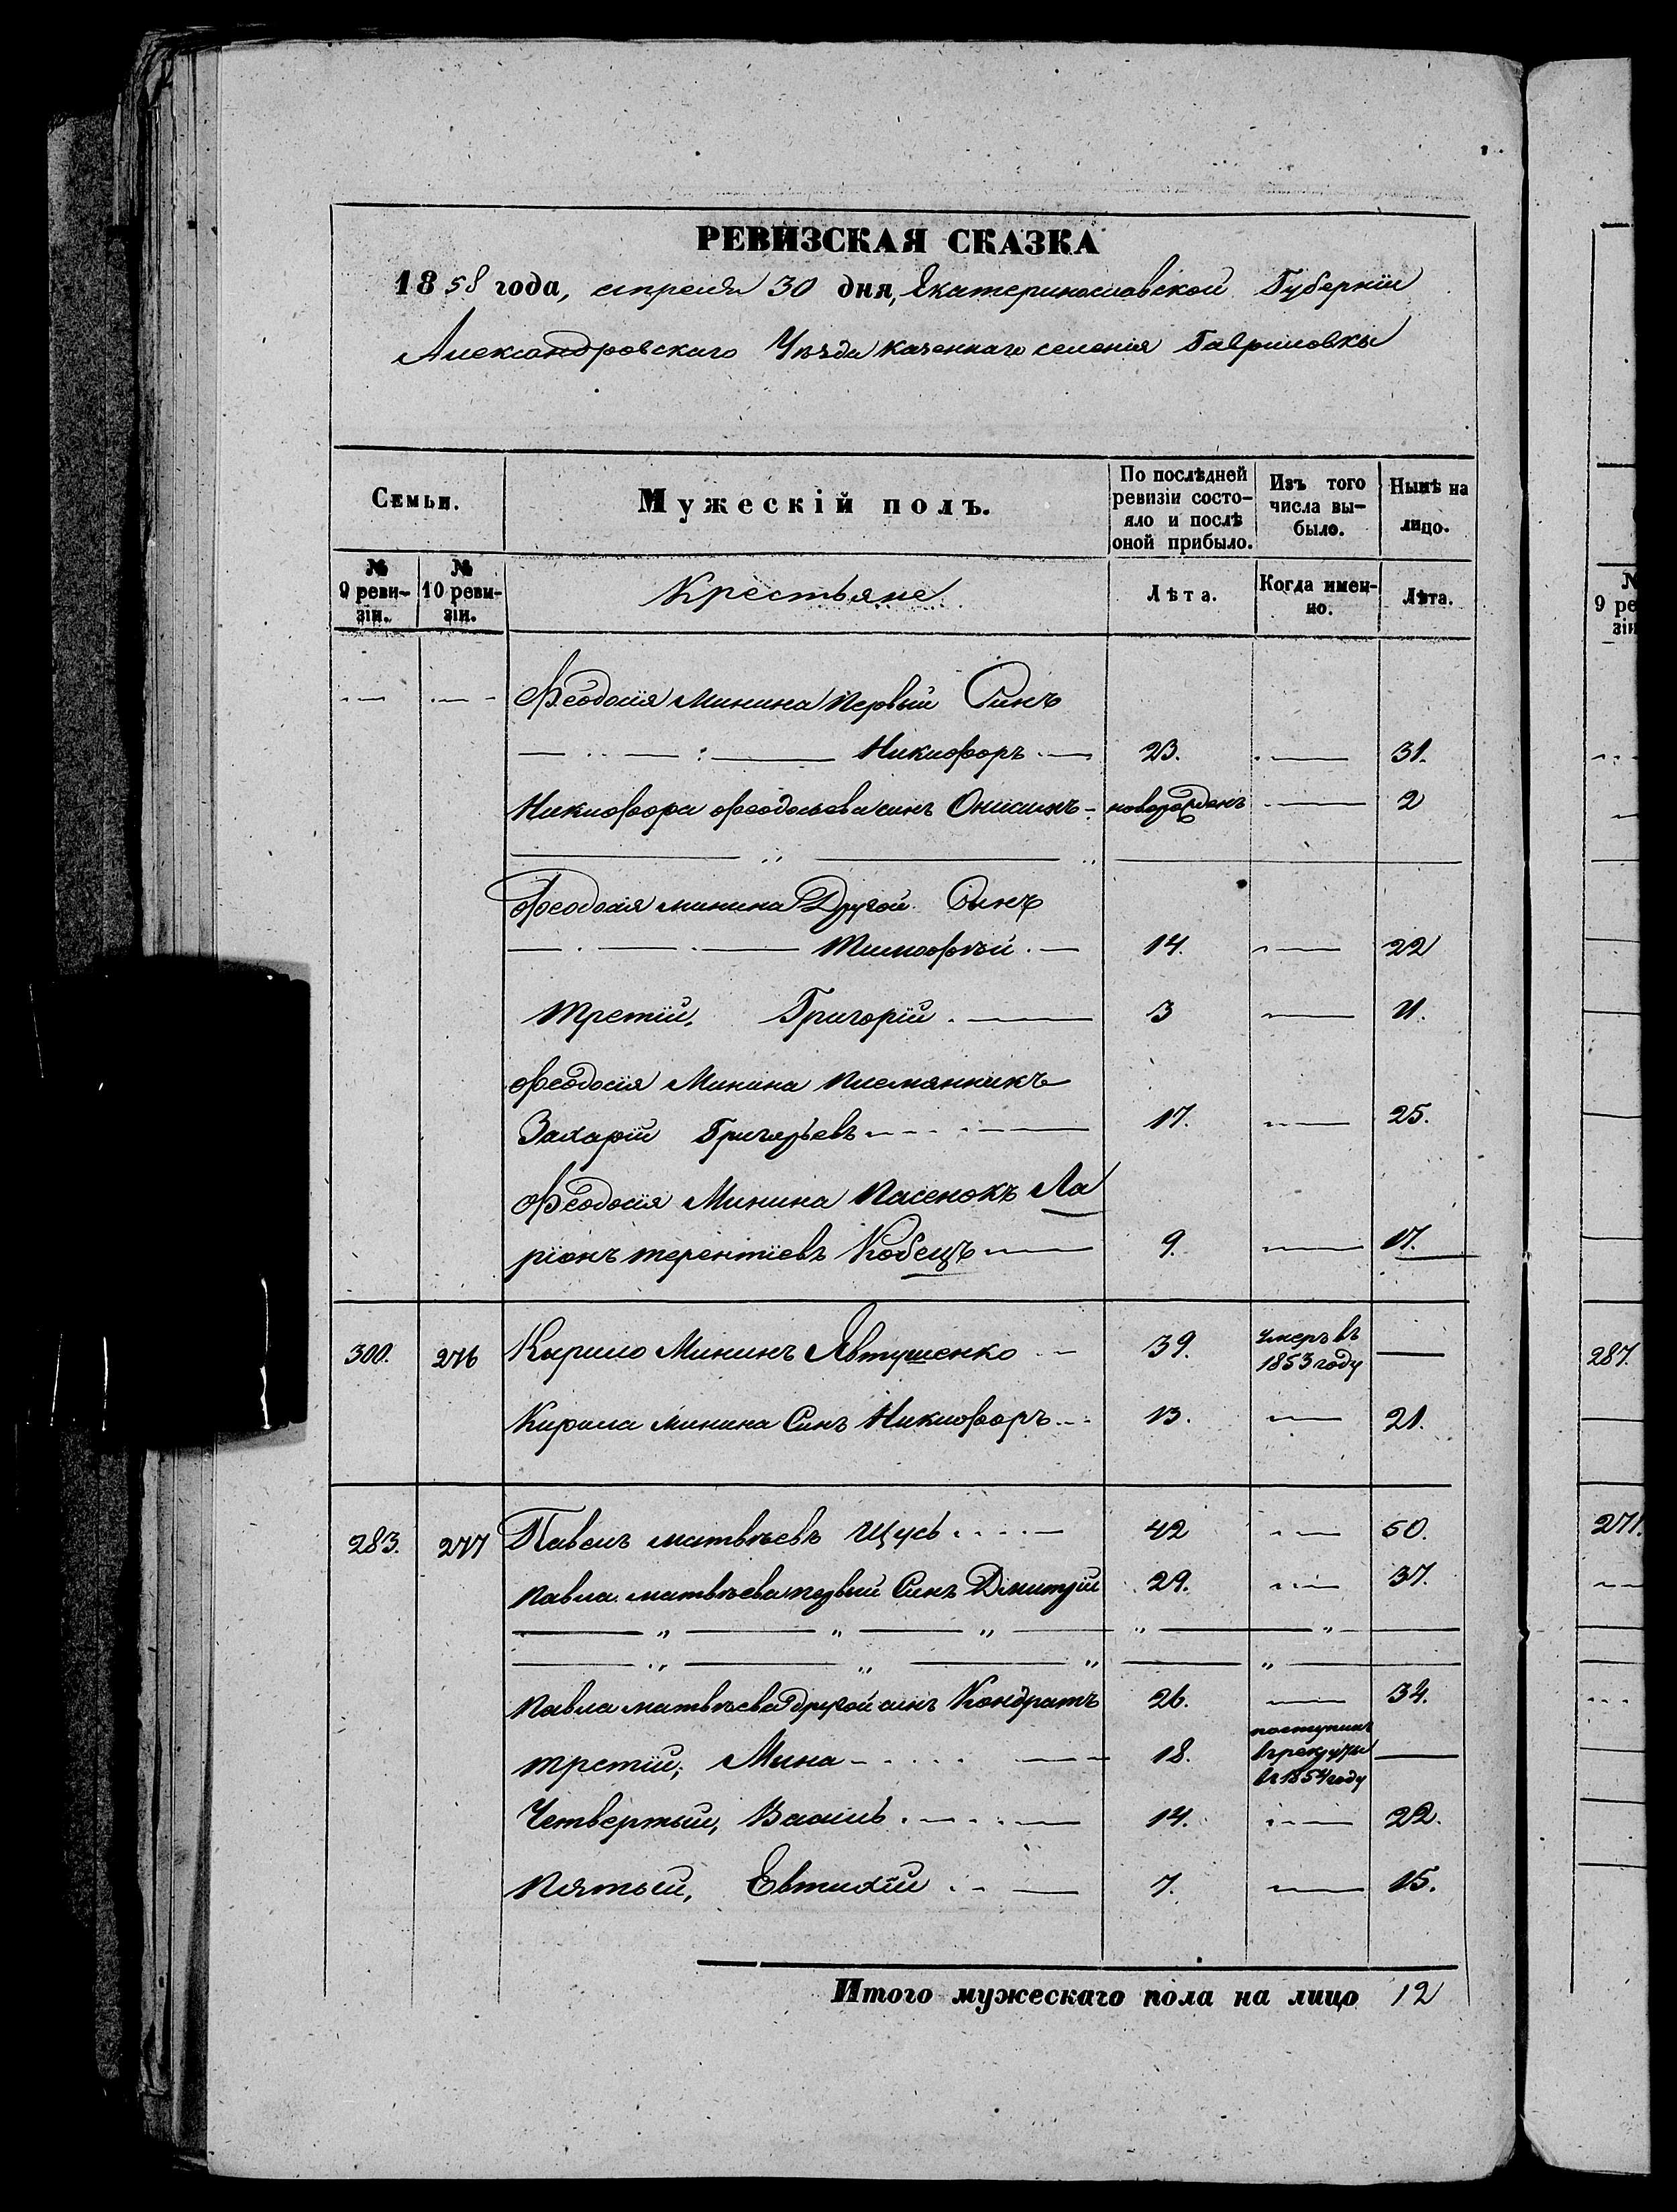 РЕВИЗСКАЯ СКАЗКА
1858 года, апреля 30 дня, Екатеринославской Губернїи
Александровскаго Уѣзда казеннаго селенїя Гавриловки
Семьи.
Мужескій полъ.
По послѣдней ревизіи состо-
яло и послѣ
оной прибыло.
Изъ того
числа вы-
было.
Нынѣ на
лицо.
№ 9 реви-
зіи.
№ 10 реви-
зіи.
Крестьяне
Лѣта.
Когда имен-
но.
Лѣта.
Феодосїя Минина первый Синъ
Никифоръ 23. 31.
Никифора феодосьева синъ Онисимъ новорожденъ 2
Феодосїя минина Другой Сынъ
Тимофѣй 14. 22
третїй, Григорїй 3 11.
Феодосїя Минина племянникъ
Захарїй Григорьевъ 17. 25.
Феодосїя Минина пасенокъ Ла
рїонъ терентїевъ Кобецъ 9. 17.
300. 276 Кырило Мининъ Явтушенко 39. умеръ въ
1853 году
Кирила минина Синъ Никифоръ 13. 21.
283. 277 Павелъ матвѣевъ Щусь 42 50.
Павла матвѣева первый Синъ Дмитрїй 29. 37.
Павла матвѣева другой синъ Кондратъ 26. 34.
третїй, Мина 18. поступилъ
в рекруты
в 1854 году
Четвертый, Василь 14. 22.
пятый, Евтихїй 7. 15.
Итого мужескаго пола на лицо 12
№
9 ре
зіи
287.
271.